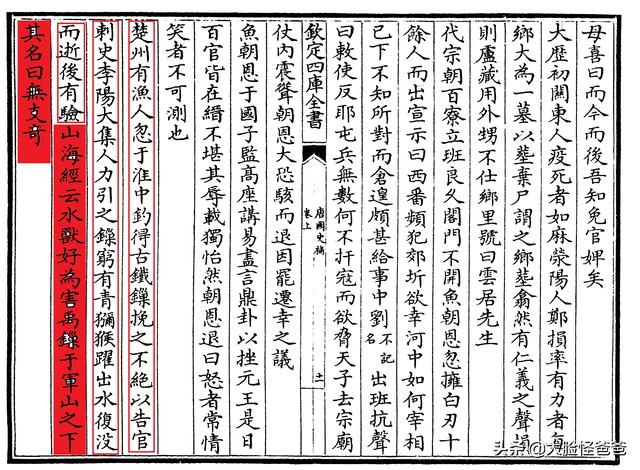 母喜曰而今而後吾知免官婢矣
大歴初關東人疫死者如麻滎陽人鄭損率有力者每
鄉大為一墓以塟棄尸謂之鄉塟翕然有仁義之聲損
則盧藏用外甥不仕鄉里號曰雲居先生
代宗朝百寮立班良久閤門不開魚朝恩忽擁白刃十
餘人而出宣示曰西番頻犯郊圻欲幸河中如何宰相
已下不知所對而倉遑頗甚給事中劉不記名出班抗聲
曰敕使反耶屯兵無數何不扞寇而欲脅天子去宗廟
欽定四庫全書
唐國史補
卷上
十一
仗内震聳朝恩大恐駭而退因罷遷幸之議
魚朝恩于國子監髙座講易盡言鼎卦以挫元王是日
百官皆在縉不堪其辱載獨怡然朝恩退曰怒者常情
笑者不可測也
楚州有漁人忽于淮中釣得古鐵鏁挽之不絶以告官
刺史李陽大集人力引之鏁窮有青獼猴躍出水復没
而逝後有驗山海經云水獸好為害禹鏁于軍山之下
其名曰無支奇
头条@大脸怪爸爸